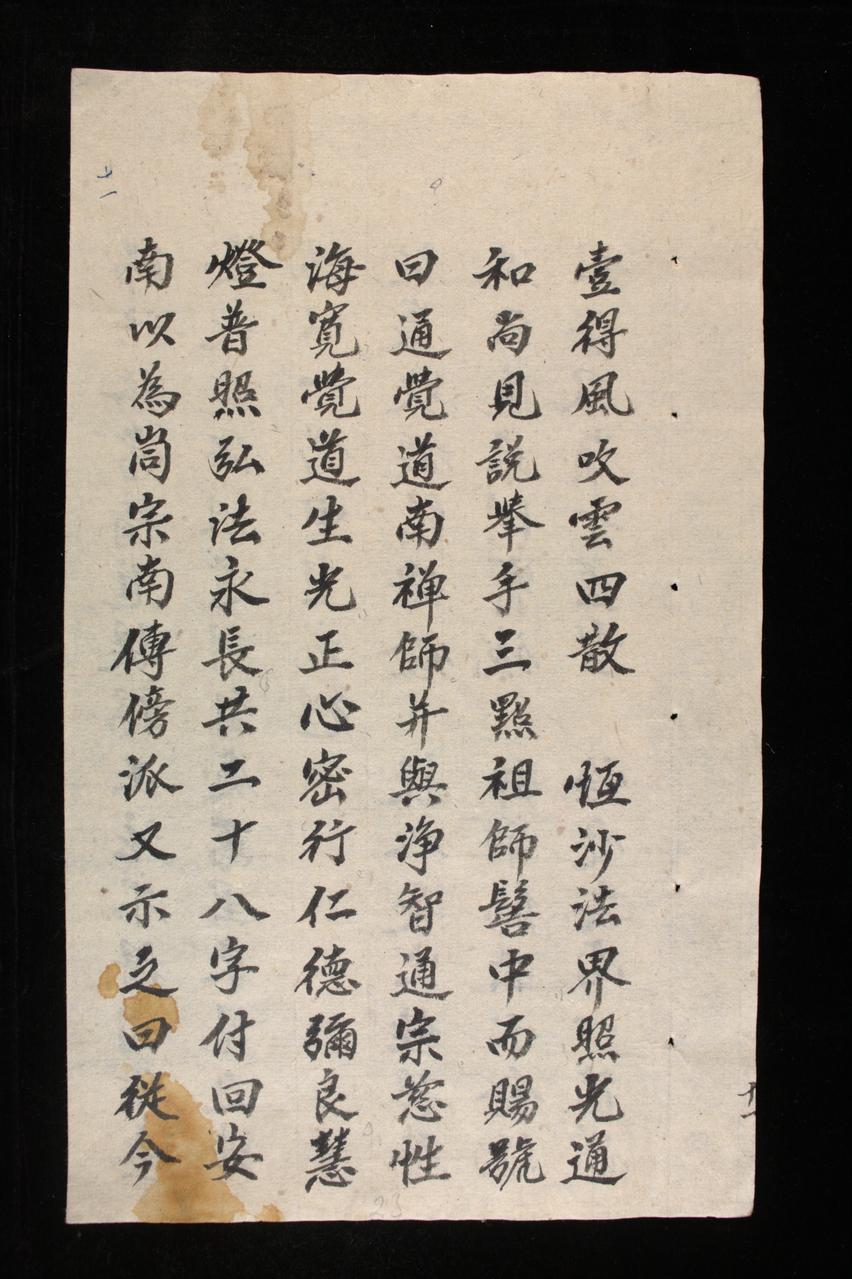 壹得風吹雲四散　恒沙法界照光通
和尚見說舉手三點祖師髻中而賜號
曰通覺道南禅師并與淨智通宗慈性
海寬覺道生光正心密行仁德彌良慧
燈普照弘法永長共二十八字付回安
南以為啇宗南傳傍派又示之曰從今
十一
十一
23